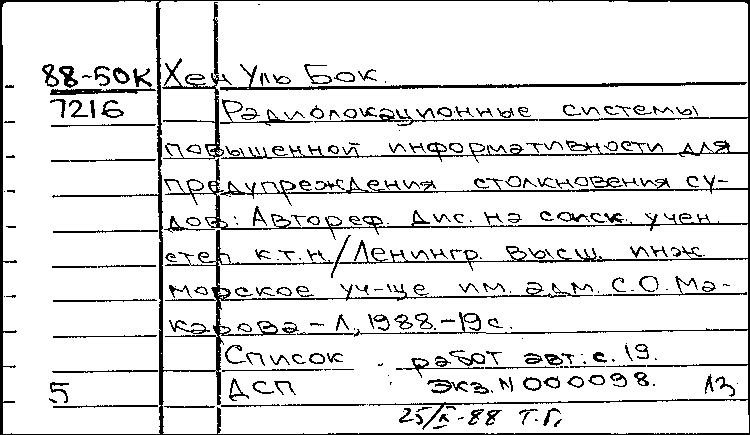 88-50К Хен Уль Бок.
7216 Радиолокационные системы
повышенной информативности для
предупреждения столкновения су-
дов: Автореф. дис. на соиск. учен.
степ. к.т.н./Ленингр. высш. инж.
морское уч-ще им. адм. С.О. Ма-
карова.-Л, 1988.-19с.
Список работ авт.: с. 19.
5 ДСП Экз. N 000098.
25/X-88 Т.Г.